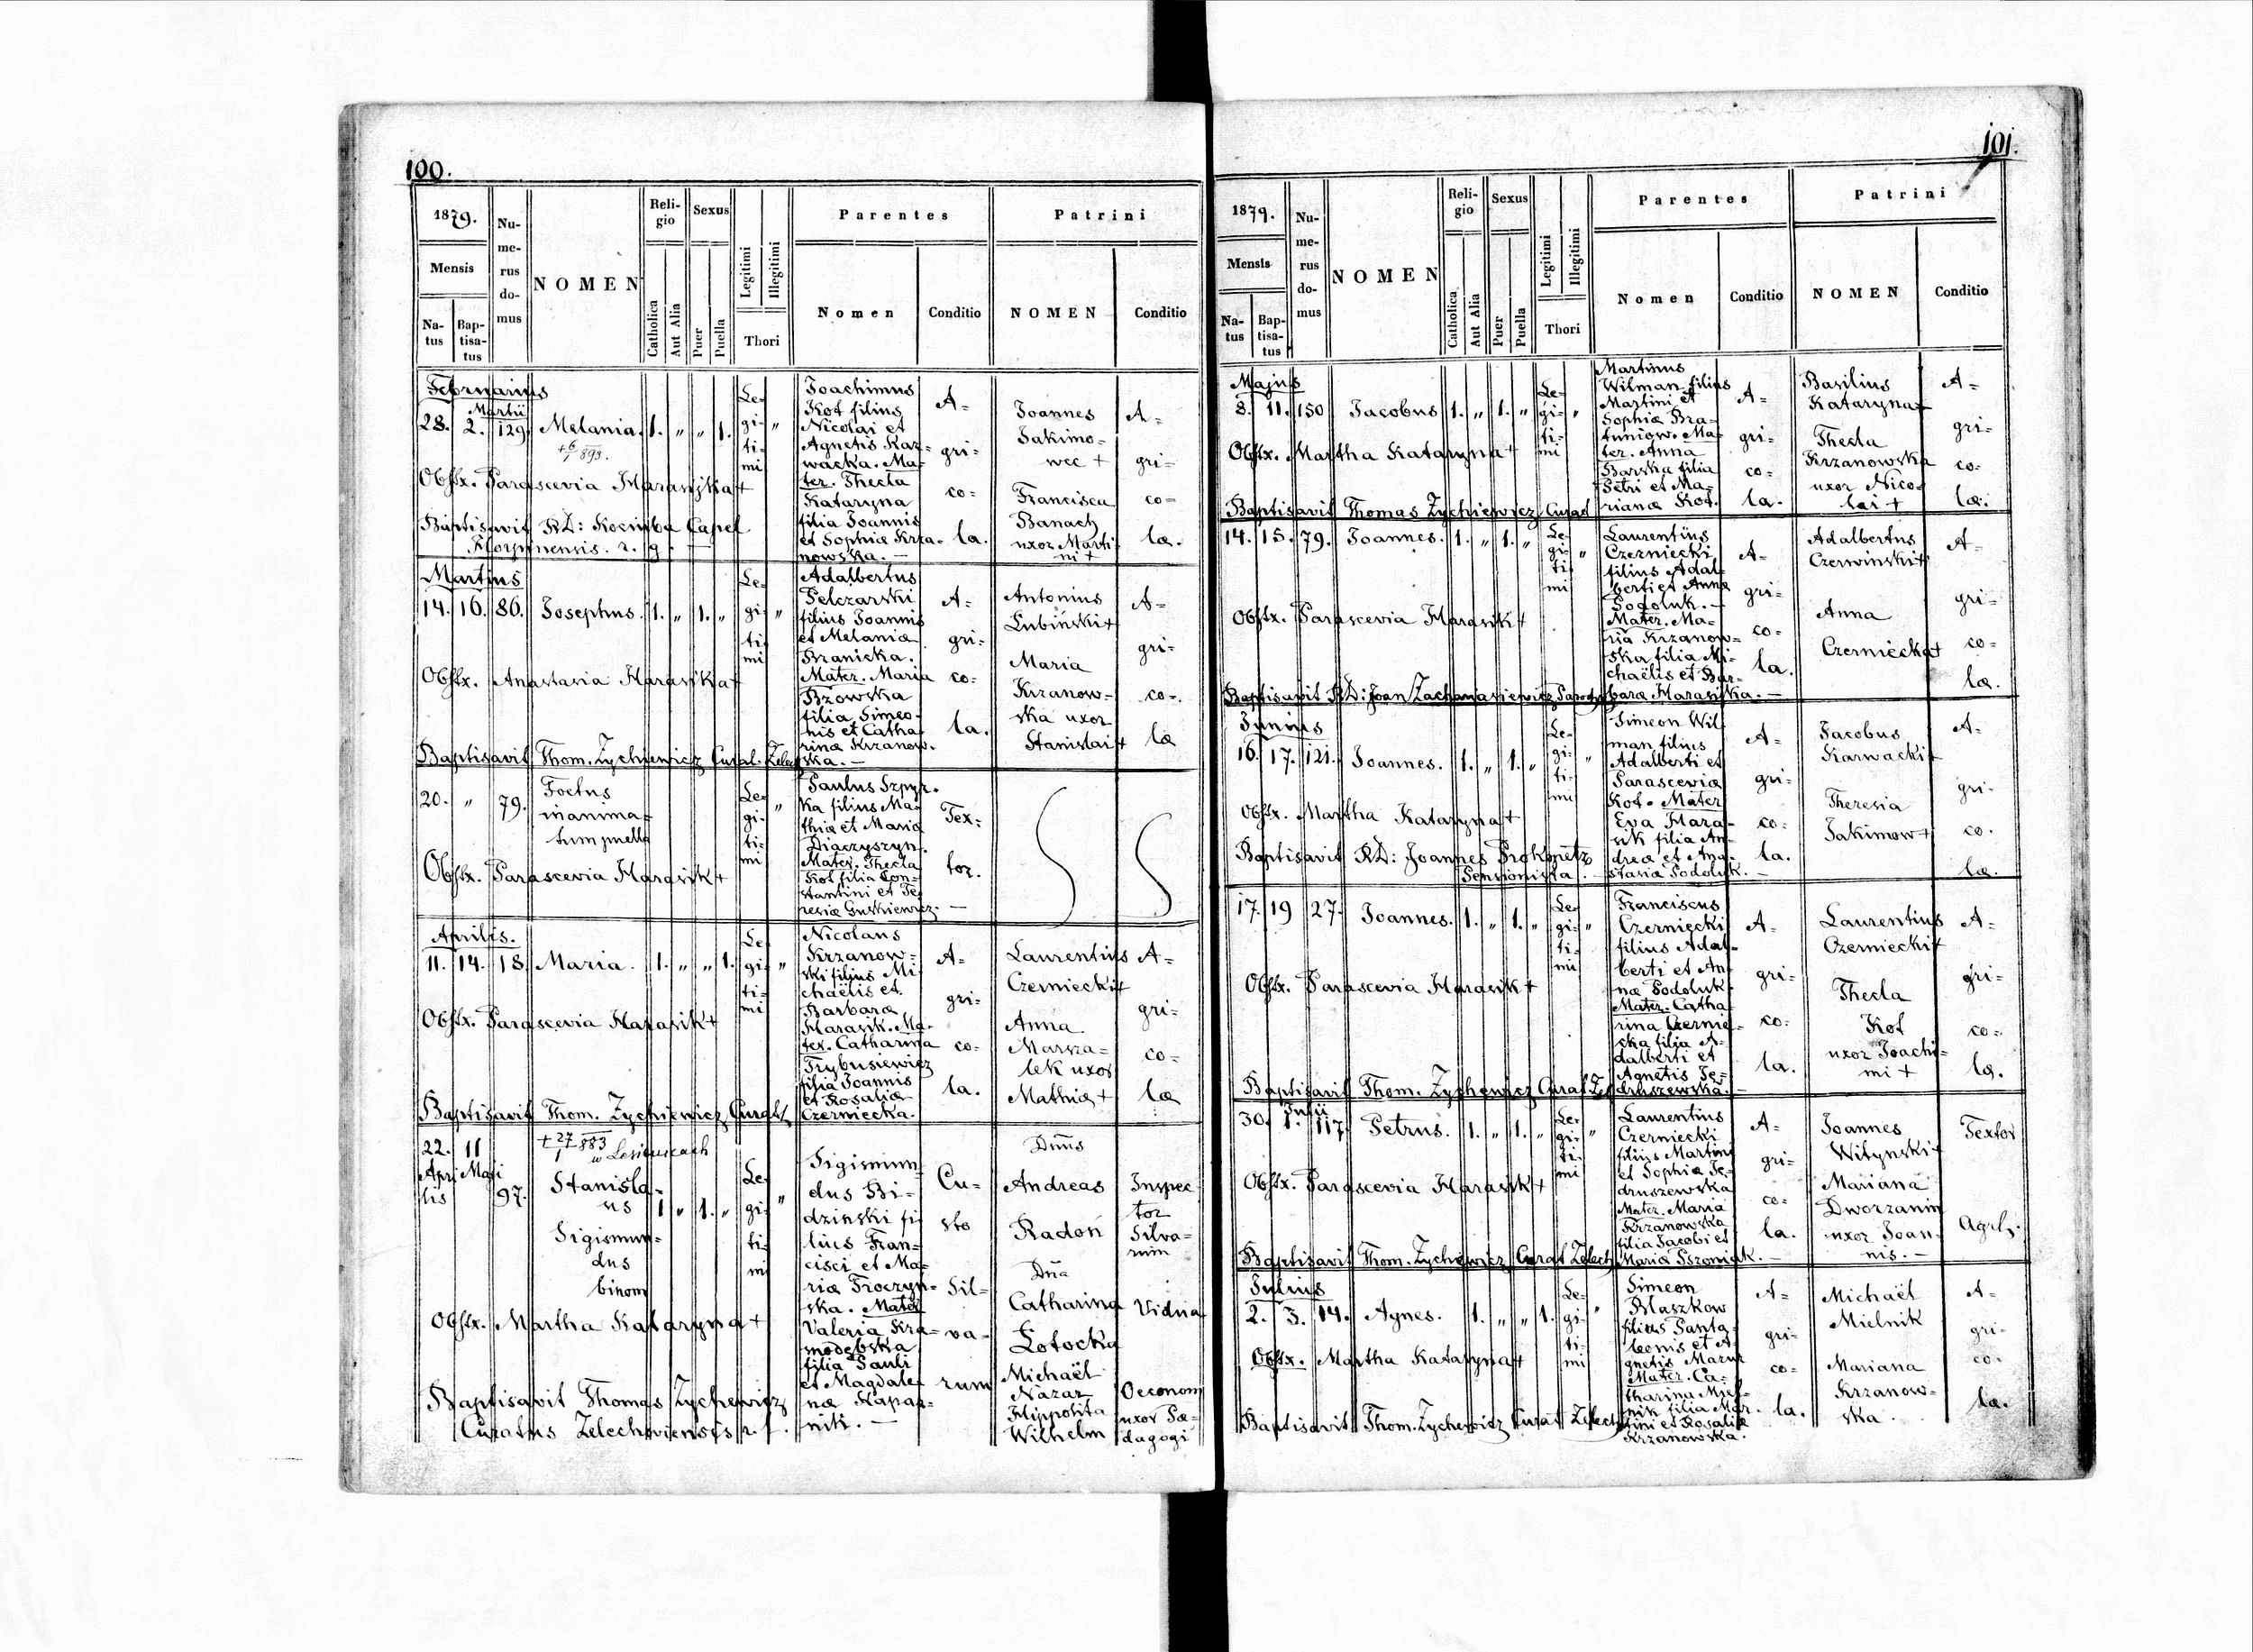 100.
1879.
Mensis
Na-
tus
Bap-
tisa-
tus
Nu-
me-
rus
do-
mus
NOMEN
Reli-
gio
Catholica
Aut Alia
Sexus
Puer
Puella
Legitimi
Illegitimi
Thori
Parentes
Nomen
Conditio
Patrini
NOMEN
Conditio
Februarius
Martii
28. 2. 129. Melania. 1. " " 1.
Le-
gi- "
ti-
mi
Obstx. Parascevia Harasjka+
Baptisavit RD: Kociuba Capel
r. g.
Joachimus
Kot filius
Nicolai et
Agnetis Kar-
wacka. Ma-
ter. Thecla
Kataryna
filia Joannis
et Sophiæ Krza-
nowska. —
A-
gri-
co-
la.
Joannes
Jakimo-
wec +
Francisca
Banach
uxor Marti-
ni +
A-
gri-
co-
læ.
Martius
14. 16. 86. Josephus. 1. " 1. "
Le-
gi- "
ti-
mi
Obstx. Anastasia Harasjka+
Baptisavit Thom. Zychiewicz Curat. Zelech
Adalbertus
Pelczarski
filius Joannis
et Melaniæ
Branicka.
Mater. Maria
Bzowska
filia Simeo-
nis et Catha-
rinæ Krzanow-
ska. —
A-
gri-
co-
la.
Antonius
Lubiński+
Maria
Krzanow-
ska uxor
Stanislai+
A-
gri-
co-
læ
20. " 79. Foetus
inanima-
tum puella
Le-
gi- "
ti-
mi
Obstx. Parascevia Harasik+
Paulus Szpyr-
ka filius Ma-
thiæ et Maria
Diaczyszyn.
Mater. Thecla
Kot filia Con-
stantini et Te-
resiæ Guskiewicz. —
Tex-
tor.
Aprilis.
11. 14. 18. Maria. 1. " " 1.
Le-
gi- "
ti-
mi
Obstx. Parascevia Harasik+
Baptisavit Thom. Zychiewicz Curat
Nicolaus
Krzanow-
ski filius Mi-
chaëlis et
Barbaræ
Harasik. Ma-
ter. Catharina
Trybusiewicz
filia Joannis
et Rosaliæ
Czerniecka.
A-
gri-
co-
la.
Laurentius
Czerniecki+
Anna
Marsza-
lek uxor
Mathiæ+
A-
gri-
co-
læ
22. 11
Apri- Maji
lis
97.
Stanisla-
us
Sigismun-
dus
binom
1 " 1. "
Le-
gi- "
ti-
mi
Obstx. Martha Kataryna+
Baptisavit Thomas Zychewicz
Curatus Zelechoviensis r. l.
Sigismun-
dus Bi-
dzinski fi-
lius Fran-
cisci et Ma-
riæ Troczyn-
ska. Mater
Valeria Kra-
modębska
filia Pauli
et Magdale-
næ Kapar-
nik. —
Cu-
sto
Sil-
va-
rum
Dnus
Andreas
Radoń
Dna
Catharina
Łotocka
Michaël
Nazar
Hippolita
Wilhelm
Inspec-
tor
Silva-
rum
Vidua
Oeconom
uxor Pæ-
dagogi
101.
1879.
Mensis
Na-
tus
Bap-
tisa-
tus
Nu-
me-
rus
do-
mus
NOMEN
Reli-
gio
Catholica
Aut Alia
Sexus
Puer
Puella
Legitimi
Illegitimi
Thori
Parentes
Nomen
Conditio
Patrini
NOMEN
Conditio
Majus
8. 11. 150 Jacobus 1. " 1. "
Le-
gi- "
ti-
mi
Obstx. Martha Kataryna+
Baptisavit Thomas Zychiewicz Curat
Martinus
Wilman filius
Martini et
Sophiæ Bra-
tuniow. Ma-
ter. Anna
Barska filia
Petri et Ma-
rianæ Kot.
A-
gri-
co-
la.
Basilius
Kataryna+
Thecla
Krzanowska
uxor Nico-
lai +
A-
gri-
co-
læ.
14. 15. 79. Joannes. 1. " 1. "
Le-
gi- "
ti-
mi
Obstx. Parascevia Harasik+
Baptisavit RD: Joan Zachariasiewicz
Laurentius
Czerniecki
filius Adal-
berti et Annæ
Podoluk. —
Mater. Ma-
ria Krzanow-
ska filia Mi-
chaëlis et Bar-
baræ Harasjka. —
A-
gri-
co-
la.
Adalbertus
Czerwinski+
Anna
Czerniecka+
A-
gri-
co-
læ.
Junius
16. 17. 121. Joannes. 1. " 1. "
Le-
gi- "
ti-
mi
Obstx. Martha Kataryna+
Baptisavit RD: Joannes
Pensionista. —
Simeon Wil-
man filius
Adalberti et
Parasceviæ
Kot. Mater
Eva Hara-
sik filia An-
dreæ et Ana-
stasiæ Podoluk. —
A-
gri-
co-
la.
Jacobus
Karwacki+
Theresia
Jakimow+
A-
gri-
co-
læ.
17. 19 27. Joannes. 1. " 1. "
Le-
gi- "
ti-
mi
Obstx. Parascevia Harasik+
Baptisavit Thom. Zychewicz Curat Zel
Franciscus
Czerniecki
filius Adal-
berti et An-
næ Podoluk
Mater. Catha-
rina Czernie-
cka filia A-
dalberti et
Agnetis Je-
druszewska. —
A-
gri-
co-
la.
Laurentius
Czerniecki+
Thecla
Kot
uxor Joachi-
mi +
A-
gri-
co-
læ.
Julii
30. 1. 117. Petrus. 1. " 1. "
Le-
gi- "
ti-
mi
Obstx. Parascevia Harasik+
Baptisavit Thom. Zychewicz Curat Zelech
Laurentius
Czerniecki
filius Martini
et Sophiæ Je-
druszewska
Mater. Maria
Krzanowska
filia Jacobi et
Mariæ —
A-
gri-
co-
la.
Joannes
Witynski+
Mariana
Dworzanin
uxor Joan-
nis. —
Textor
Agrlæ.
Julius
2. 3. 14. Agnes. 1. " " 1.
Le-
gi- "
ti-
mi
Obstx. Martha Kataryna+
Baptisavit Thom. Zychewicz Curat Zelech
Simeon
Blaszkow
filius Panta-
leonis et A-
gnetis Mazur
Mater. Ca-
tharina Miel-
nik filia Mar-
tini et Rosaliæ
Krzanowska.
A-
gri-
co-
la.
Michaël
Mielnik
Mariana
Krzanow-
ska.
A-
gri-
co-
læ.